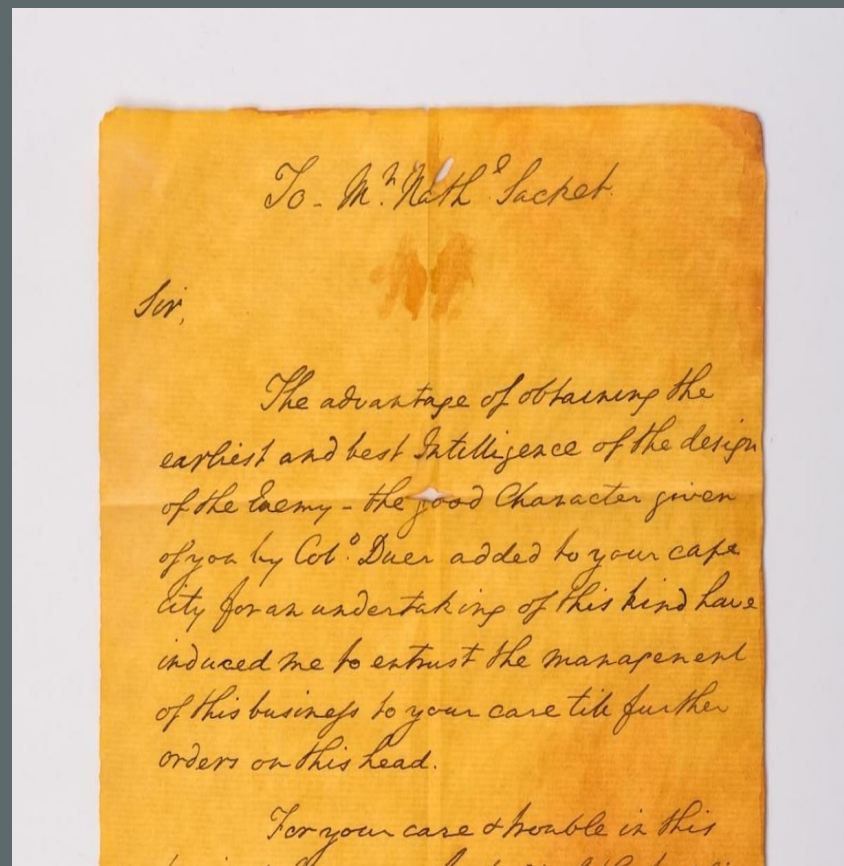 To - Mr. Nathl. Sacket.
Sir,
The advantage of obtaining the
earliest and best Intelligence of the design
of the Enemy - the good Character given
of you by Colo. Duer added to your capa
city for an undertaking of this kind have
induced me to entrust the management
of this business to your care till further
orders on this head.
For your care & trouble in this